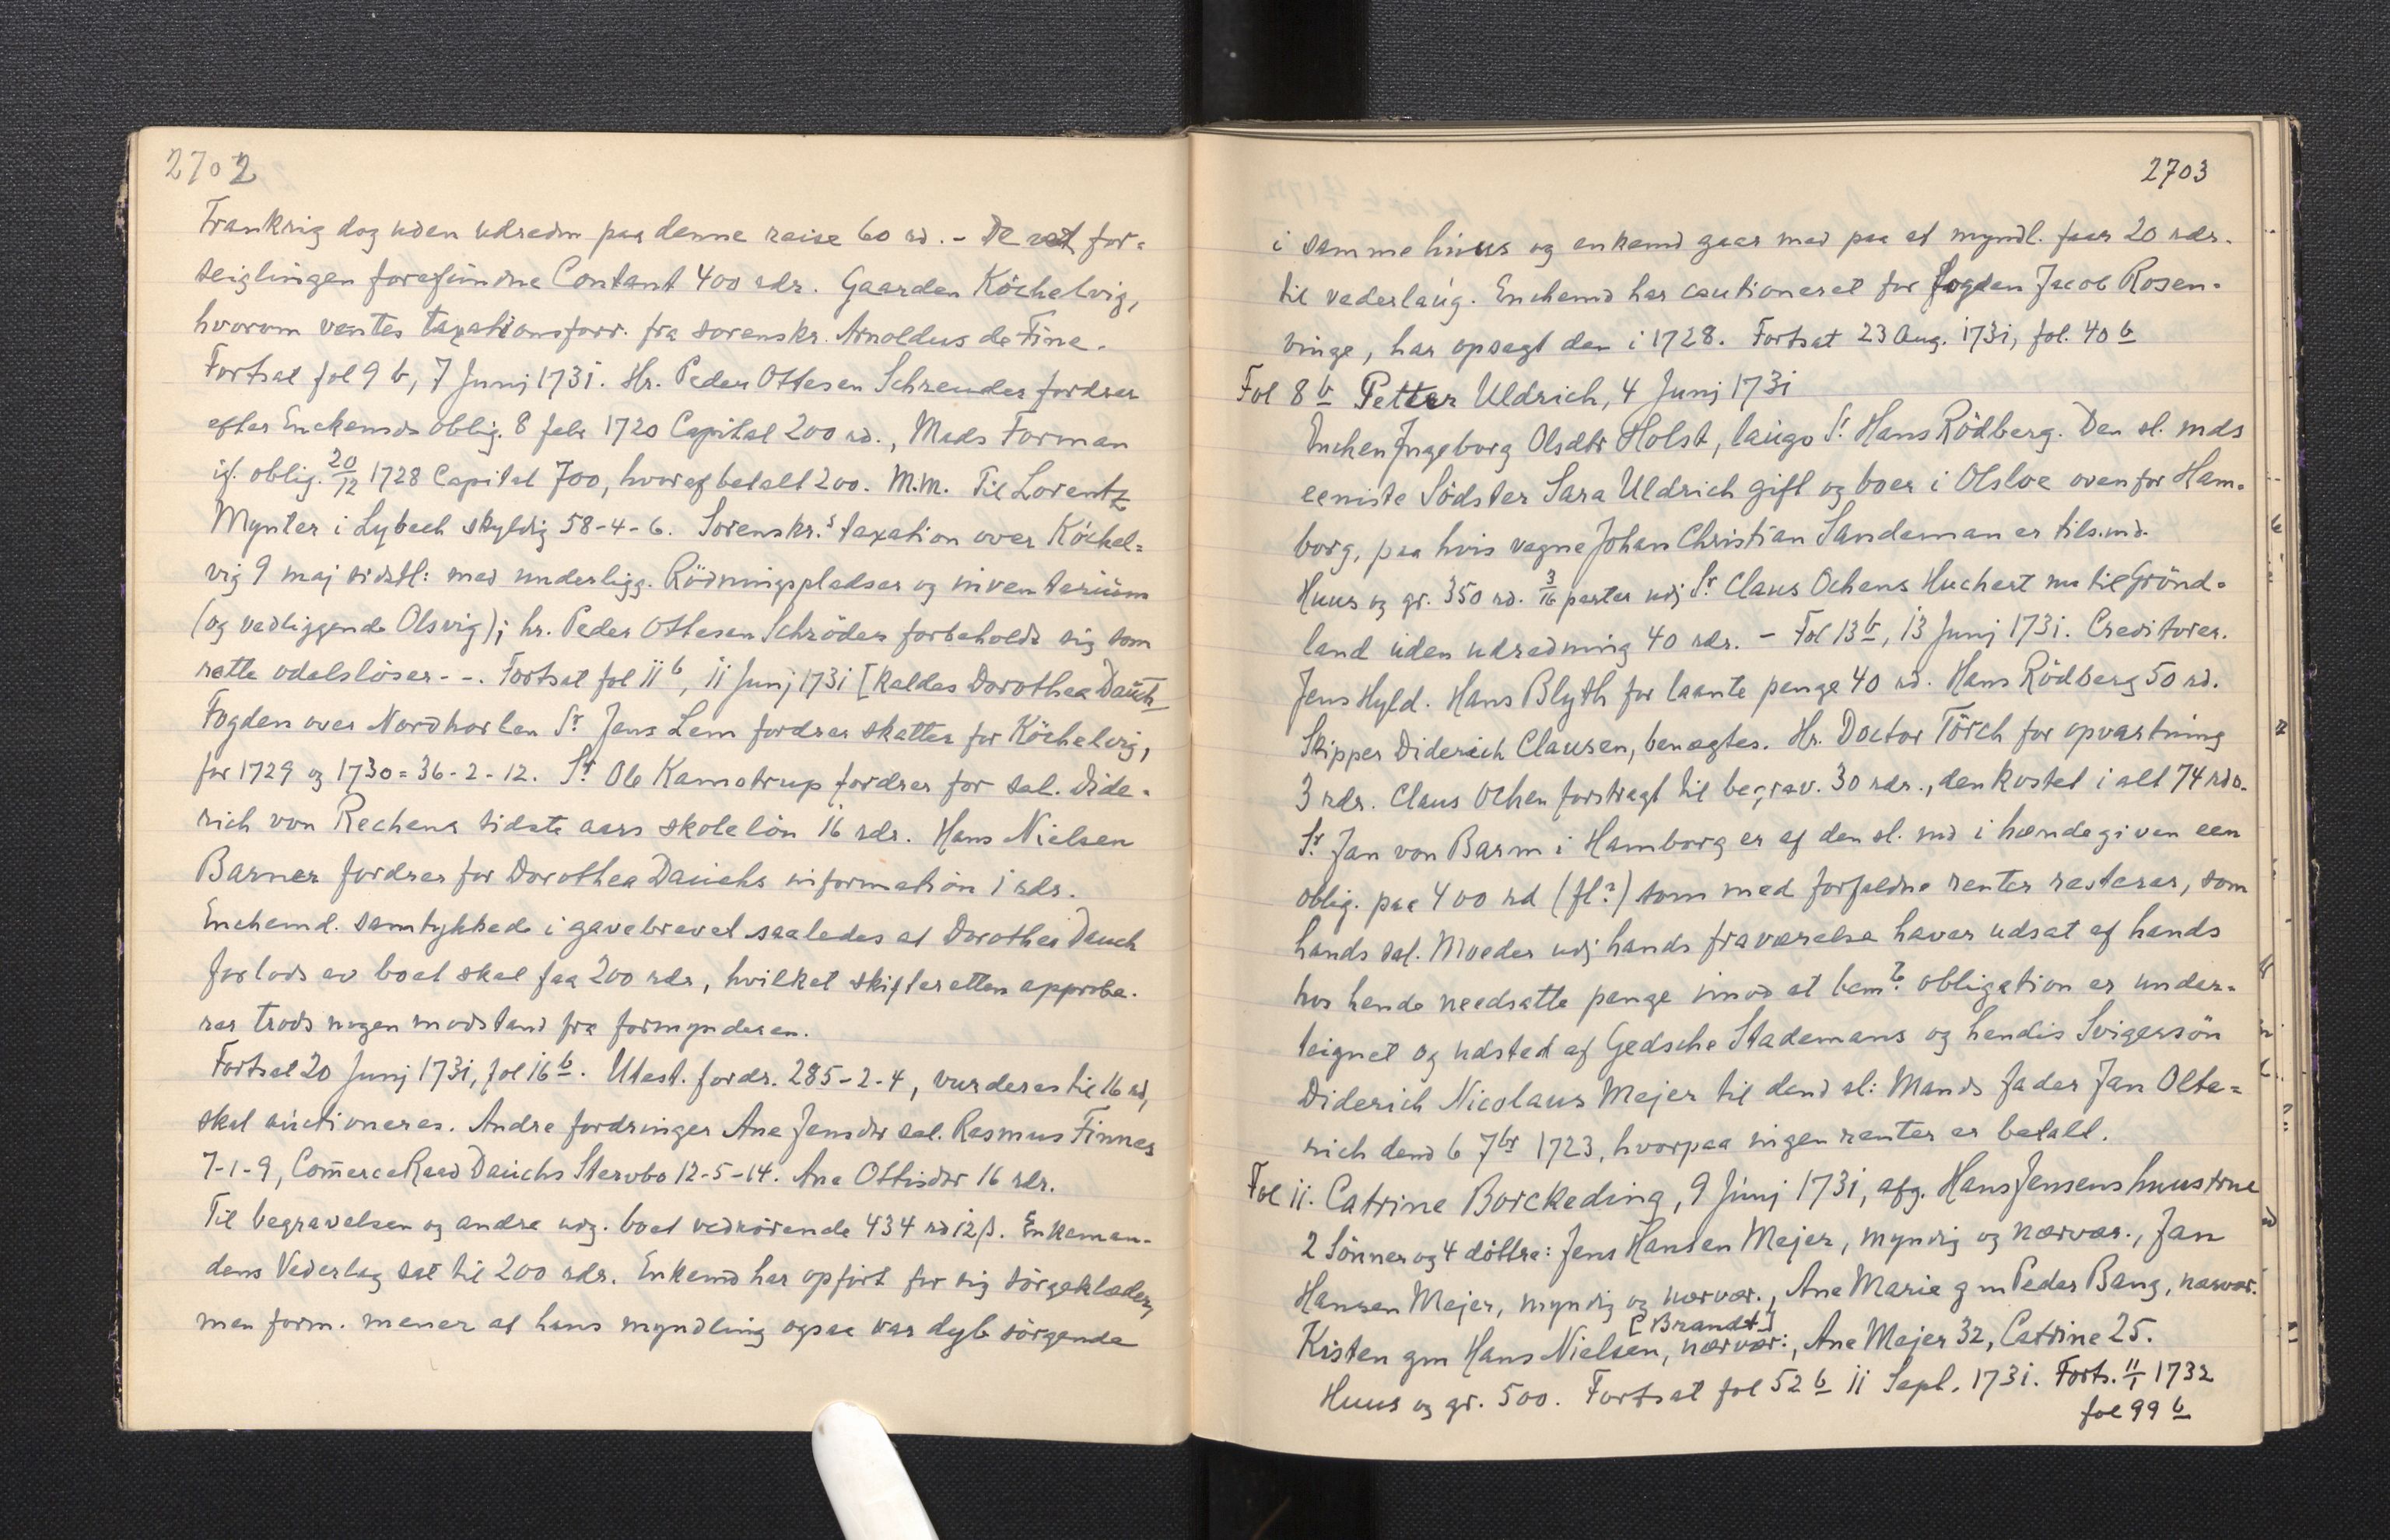 2702
Frankrig dog uden udredn paa denne reise 60 rd. - De ved for-
seiglingen forefundne Contant 400 rdr. Gaarden Köchelvig,
hvorom ventes taxationsforr. fra sorenskr. Arnoldus de Fine.
Fortsat fol 9 b, 7 Junj 1731. Hr. Peder Ottesen Schreuder fordrer
efter Enkemds oblig. 8 febr 1720 Capital 200 rd., Mads Forman
if. oblig. 20/12 1728 Capital 700, hvoraf betalt 200. M.M. Til Lorentz
Mynter i Lybech skyldig 58-4-6. Sorenskr.s taxation over Köckel=
vig 9 maj sidstl: med underligg. Rödningspladser og inventarium
(og vedliggende Olsvig); hr. Peder Ottesen Schröder forbeholdr sig som
rette odelslöser - -. Fortsat fol 11 b, 11 Junj 1731 [kaldes Dorothea Dauch
Fogden over Nordhorlen Sr Jens Lem fordrer skatter for Köchelvig,
for 1729 og 1730 = 36-2-12. Sr Ole Kamstrup fordrer for sal. Dide-
rich von Rechens sidste aars skolelön 16 rdr. Hans Nielsen
Barner fordrer for Dorothea Dauchs information 1 rdr.
Enchemd. samtykkede i gavebrevet saaledes at Dorothea Dauch
forlods av boet skal faa 200 rdr, hvilket skifteretten approbe-
rer trods nogen modstand fra formynderen.
Fortsat 20 Junj 1731, fol 16 b. Utest. fordr. 285-2-4, vurderes til 16 rd,
skal auctioneres. Andre fordringer Ane Jensdtr sal. Rasmus Finnes
7-1-9, Com̄erceRaad Dauchs Stervbo 12-5-14. Ane Ottisdtr 16 rdr.
Til begravelsen og andre udg. boet vedkörende 434 rd 12 β. Enkeman-
dens Vederlag sat til 200 rdr. Enkemd har opfört for sig sörgeklæder,
men form. mener at hans myndling ogsaa var dyb sörgende
2703
i samme huus og enkemd gaar med paa at myndl. faar 20 rdr.
til vederlaug. Enchemd har cautioneret for Fogden Jacob Rosen-
vinge, har opsagt den i 1728. Fortsat 23 Aug. 1731, fol. 40 b
Fol 8 b Petter Uldrich, 4 Junj 1731
Enchen Ingeborg Olsdtr Holst, laugv Sr Hans Rödberg. Den sl. mds
eeniste Södster Sara Uldrich gift og boer i Olsloe ovenfor Ham-
borg, paa hvis vegne Johan Christian Sandeman er tils.md.
Huus og gr. 350 rd. 3/16 parter udj Sr Claus Ochens Huchert nu til Grönd-
land uden udredning 40 rdr. - Fol 13 b, 13 Junj 1731. Creditorer.
Jens Hyld. Hans Blyth for laante penge 40 rd. Hans Rödberg 50 rd.
Skipper Diderich Clausen, benægtes. Hr. Doctor Törch for opvartning
3 rdr. Claus Ochen forstragt til begrav. 30 rdr., den kostet i alt 74 rdr.
Sr Jan von Barm i Hamborg er af den sl. md i hænde given een
oblig. paa 400 rd (fl?) som med forfaldne renter resterer, som
hands sal. Moeder udj hands fraværelse haver udsat af hands
hos hende needsatte penge imod at bem.te obligation er under-
teignet og udsted af Gedsche Stademans og hendis Svigersön
Diderich Nicolaus Mejer til dend sl: Mands fader Jan Olte=
rich dend 6 7br 1723, hvorpaa ingen renter er betalt.
Fol 11. Catrine Borckeding, 9 Junj 1731, afg. Hans Jensens huustrue
2 Sönner og 4 döttre: Jens Hansen Mejer, myndig og nærvær., Jan
Hansen Mejer, myndig og nærvær., Ane Marie gm Peder Bang, nærvær.
[Brandt]
Kisten gm Hans Nielsen, nærvær:, Ane Mejer 32, Catrine 25.
Huus og gr. 500. Fortsat fol 52 b 11 Sept. 1731. Forts. 11/1 1732
fol 99 b